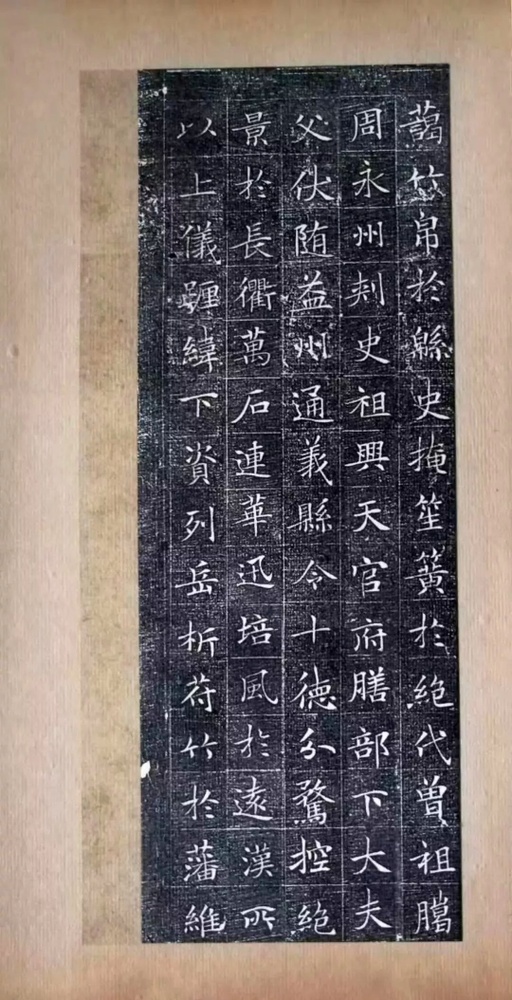 藹竹帛於緜史掩笙簧於絕代曾祖騰
周永州刾史祖興天官府膳部下大夫
父伏随益州通義縣令十德分騖控絕
景於長衢萬石連華迅培風於遠漢所
以上儀躔緯下資列岳析苻竹於藩維